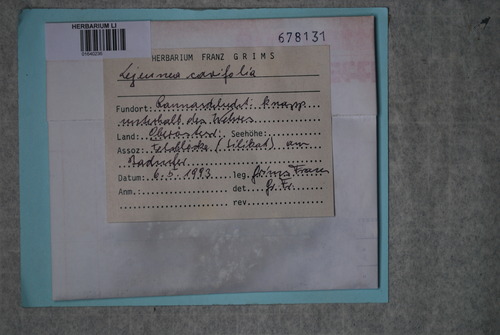 HERBARIUM LI
01640236
678131
HERBARIUM FRANZ GRIMS
Lejeunea cavifolia
Fundort: Rannaschlucht knapp
unterhalb des Wehres
Land: Oberösterr. Seehöhe:
Assoz: Felsblöcke (Silikat) am
Bachufer
Datum: 6.5.1993 leg. Grims Franz
Anm.: det. Gr. Fr.
rev.